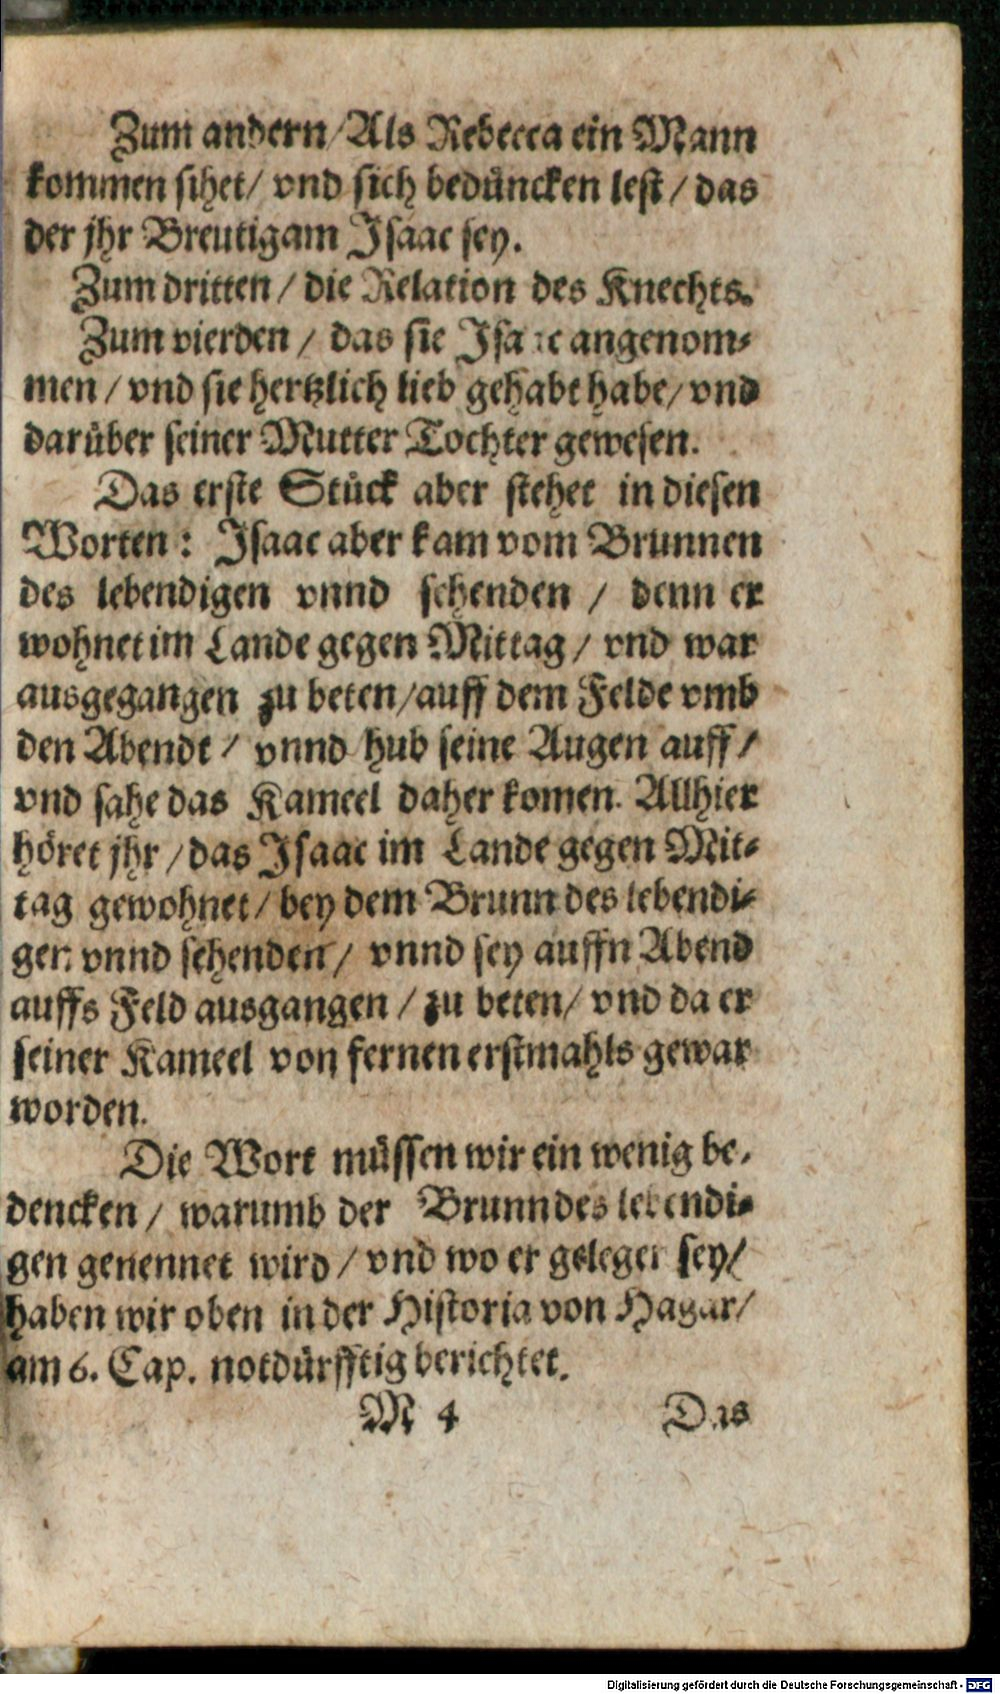 Zum andern/Als Rebecca ein Mann
kommen sihet/ vnd sich bedüncken lest/ das
der jhr Breutigam Isaac sey.
Zum dritten/ die Relation des Knechts.
Zum vierden/ das sie Isaac angenom-
men/ vnd sie hertzlich lieb gehabt habe/ vnd
darüber seiner Mutter Tochter gewesen.
Das erste Stück aber stehet in diesen
Worten: Isaac aber kam vom Brunnen
des lebendigen vnnd sehenden/ denn er
wohnet im Lande gegen Mittag/ vnd war
ausgegangen zu beten/auff dem Felde vmb
den Abendt/ vnnd hub seine Augen auff/
vnd sahe das Kameel daher komen. Allhier
höret jhr/das Isaac im Lande gegen Mit-
tag gewohnet/ bey dem Brunn des lebendi-
gen vnnd sehenden/ vnnd sey auffn Abend
auffs Feld ausgangen/ zu beten/ vnd da er
seiner Kameel von fernen erstmahls gewar
worden.
Die Wort müssen wir ein wenig be-
dencken/ warumb der Brunn des lebendi-
gen genennet wird/ vnd wo er gelegen sey/
haben wir oben in der Historia von Hagar/
am 6. Cap. notdürfftig berichtet.
M 4 Das
Digitalisierung gefördert durch die Deutsche Forschungsgemeinschaft - DFG